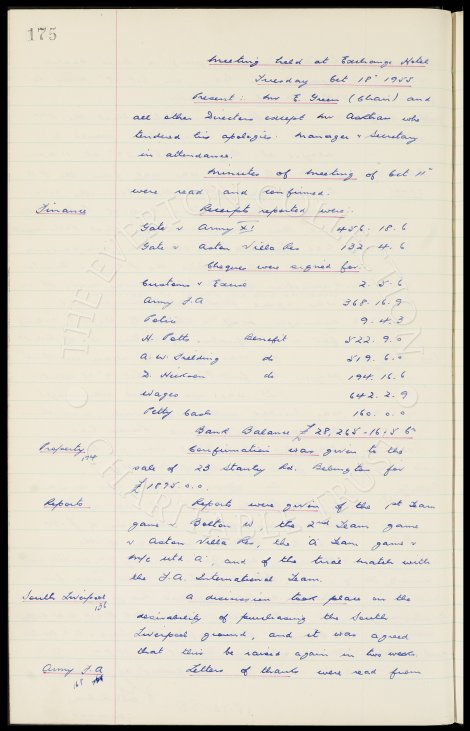 175
Meeting held at Exchange Hotel
Tuesday Oct 18th 1955
Present: Mr E. Green (Chair) and
all other Directors except Mr who
tendered his apologies. Manager & Secretary
in attendance.
Minutes of Meeting of Oct 11th
were read and confirmed.
Finance
Receipts reported were:
Gate v Army XI 456. 18. 6
Gate v Aston Villa Res 132. 4. 6
Cheques were signed for
Customs & Excise 2. 5. 6
Army F.A 368. 16. 9
Police 9. 4. 3
H. Potts Benefit 522. 9. 0
A. W. do 519. 6. 0
do 194. 16. 6
Wages 642. 2. 9
Petty Cash 160. 0. 0
Bank Balance £28,265-16-5
Property
Confirmation was given to the
sale of 23 Stanley Rd. Bebington for
£1895. 0. 0.
Reports
Reports were given of the 1st Team
game v Bolton W the 2nd Team game
v Aston Villa Res, the A Team game v
M/c Utd A, and of the trial match with
the F.A. International Team.
South Liverpool
136
A discussion took place on the
desirability of purchasing the South
Liverpool ground, and it was agreed
that this be raised again in two weeks.
Army F.A
165
Letters of thanks were read from
THE EVERTON COLLECTION
CHARITABLE TRUST